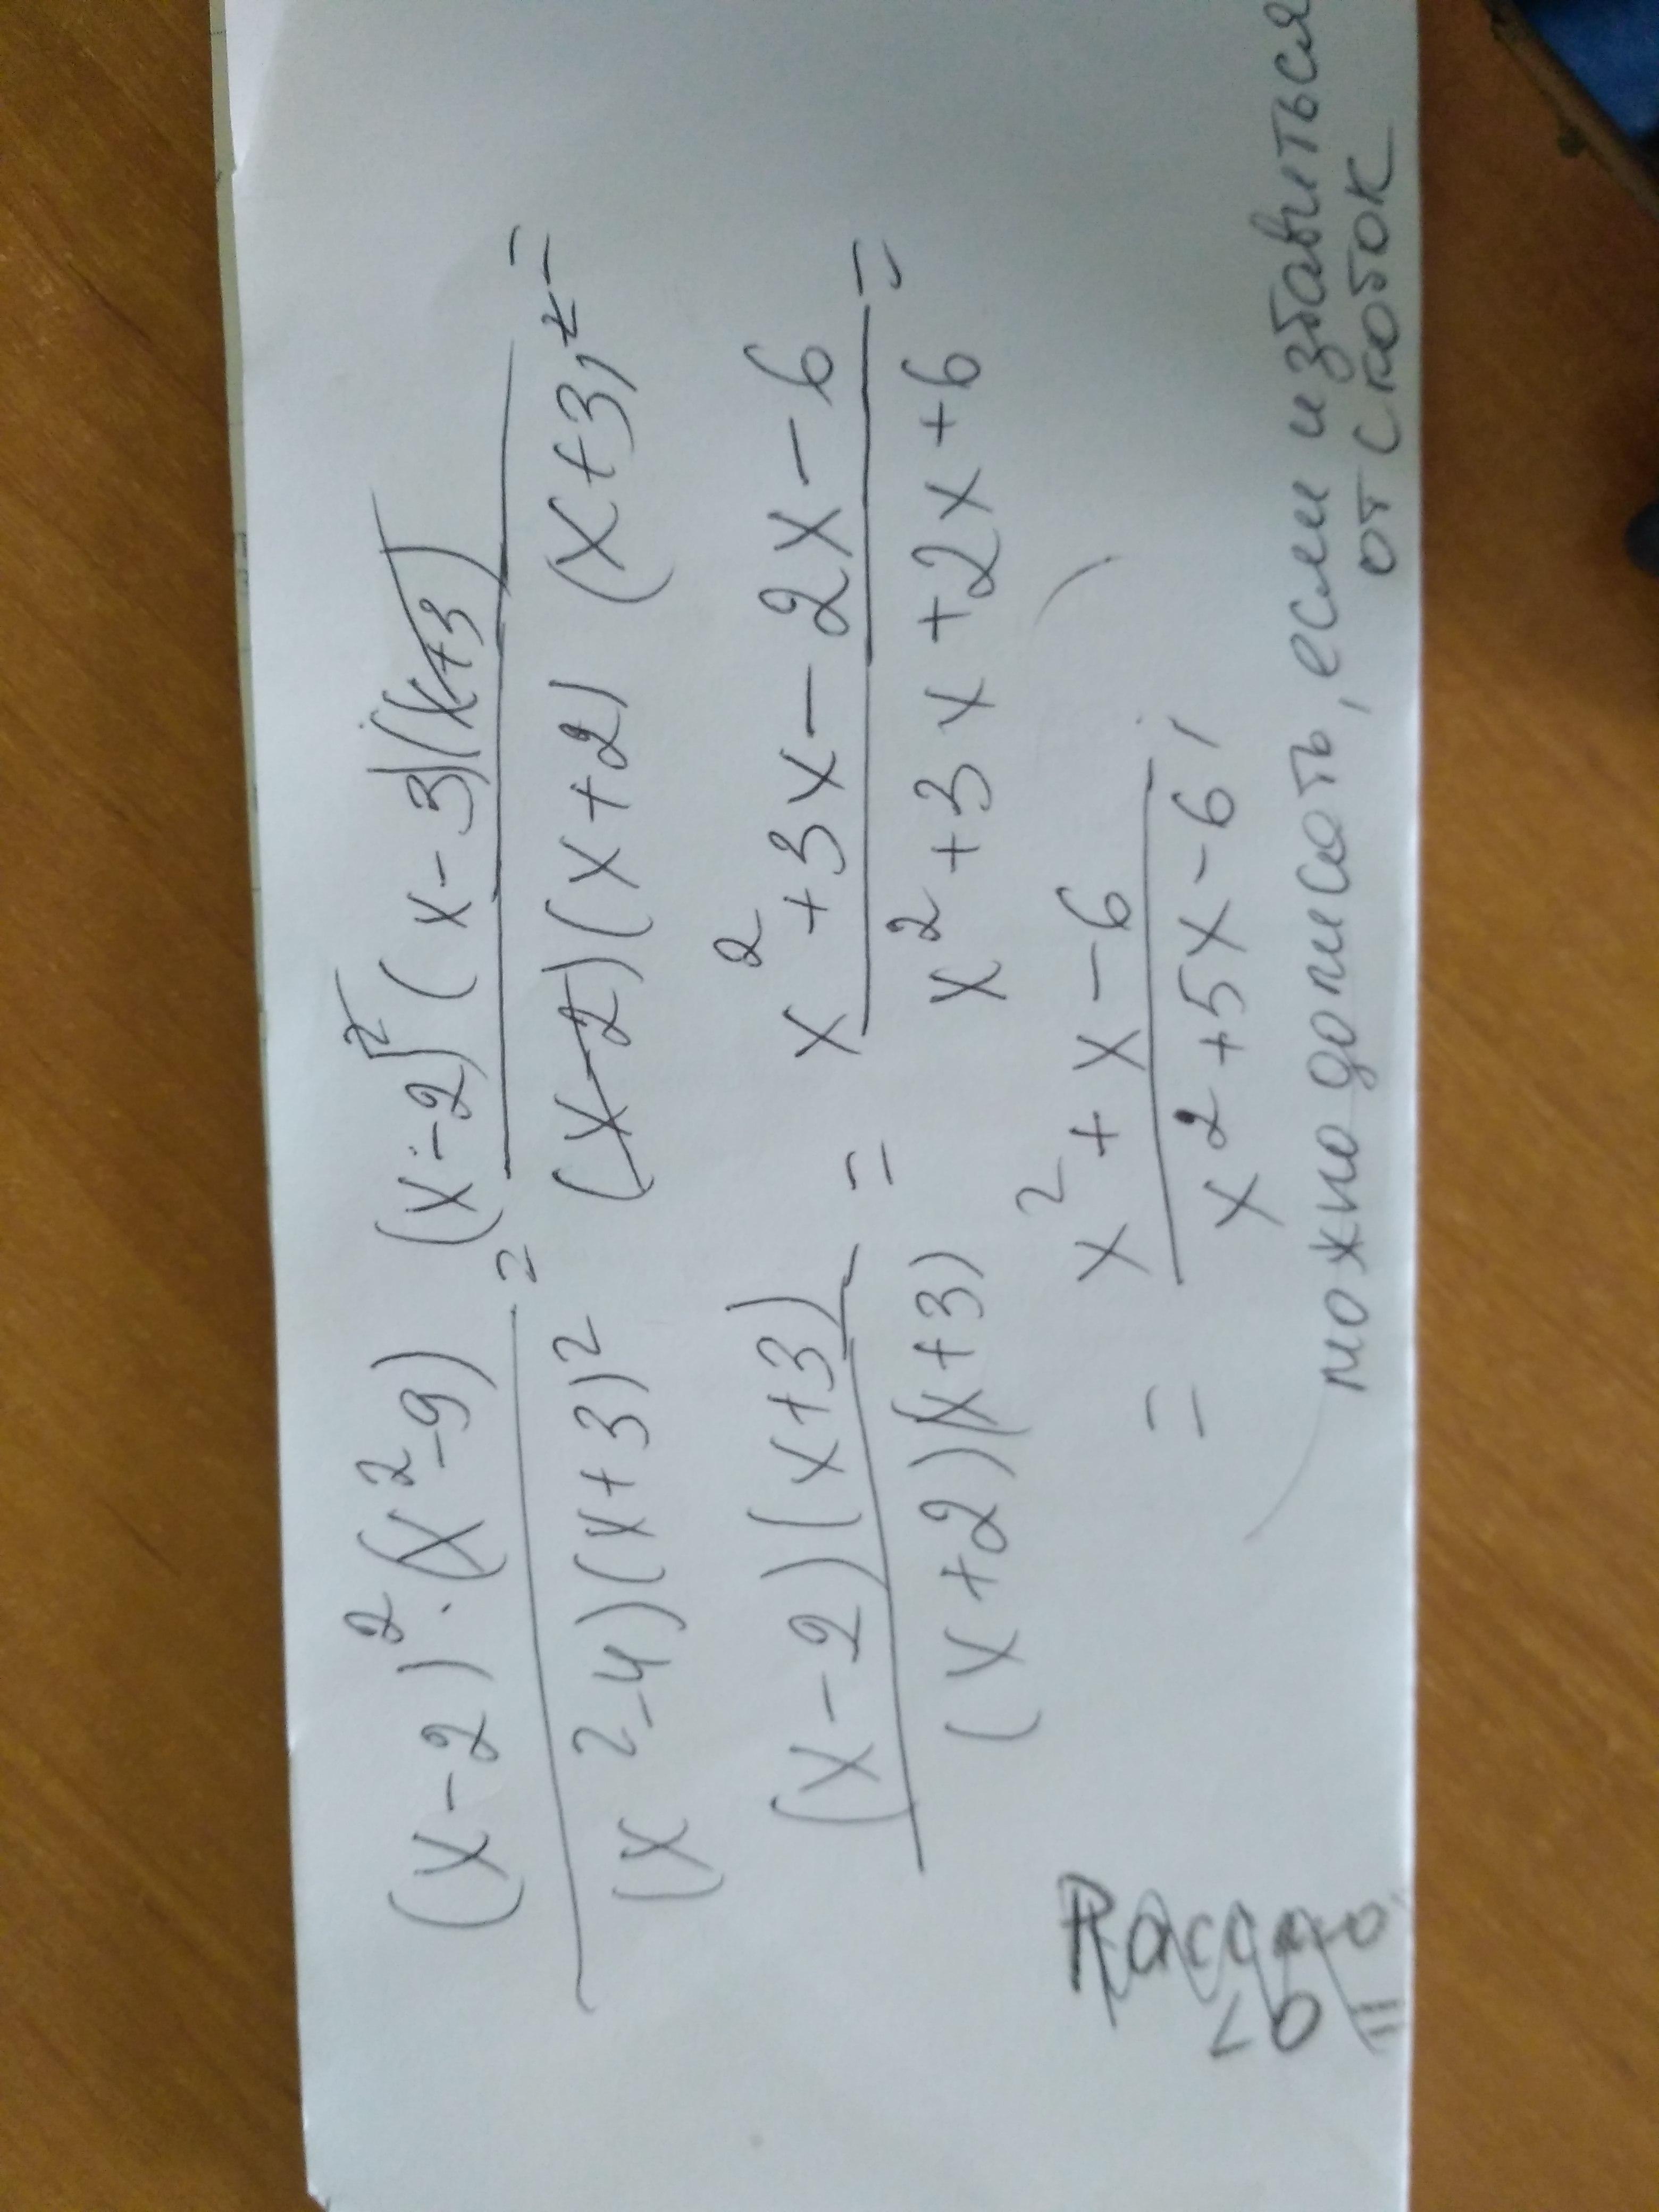 (x-2)²·(x²-9) / (x²-4)(x+3)² = (x-2)²(x-3)(x+3) / (x-2)(x+2)(x+3)² =
(x-2)(x+3) / (x+2)(x+3) = x²+3x-2x-6 / x²+3x+2x+6 =
= x²+x-6 / x²+5x-6
можно дописать, если избавиться
от скобок